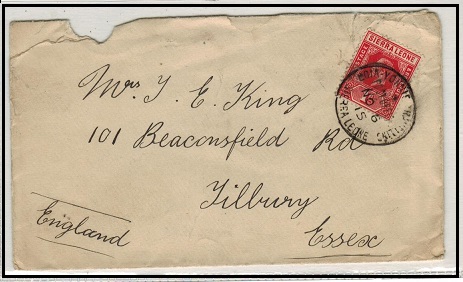 SIERRA LEONE
Mrs J. E. King
101 Beaconsfield Rd
Tilbury
Essex
England